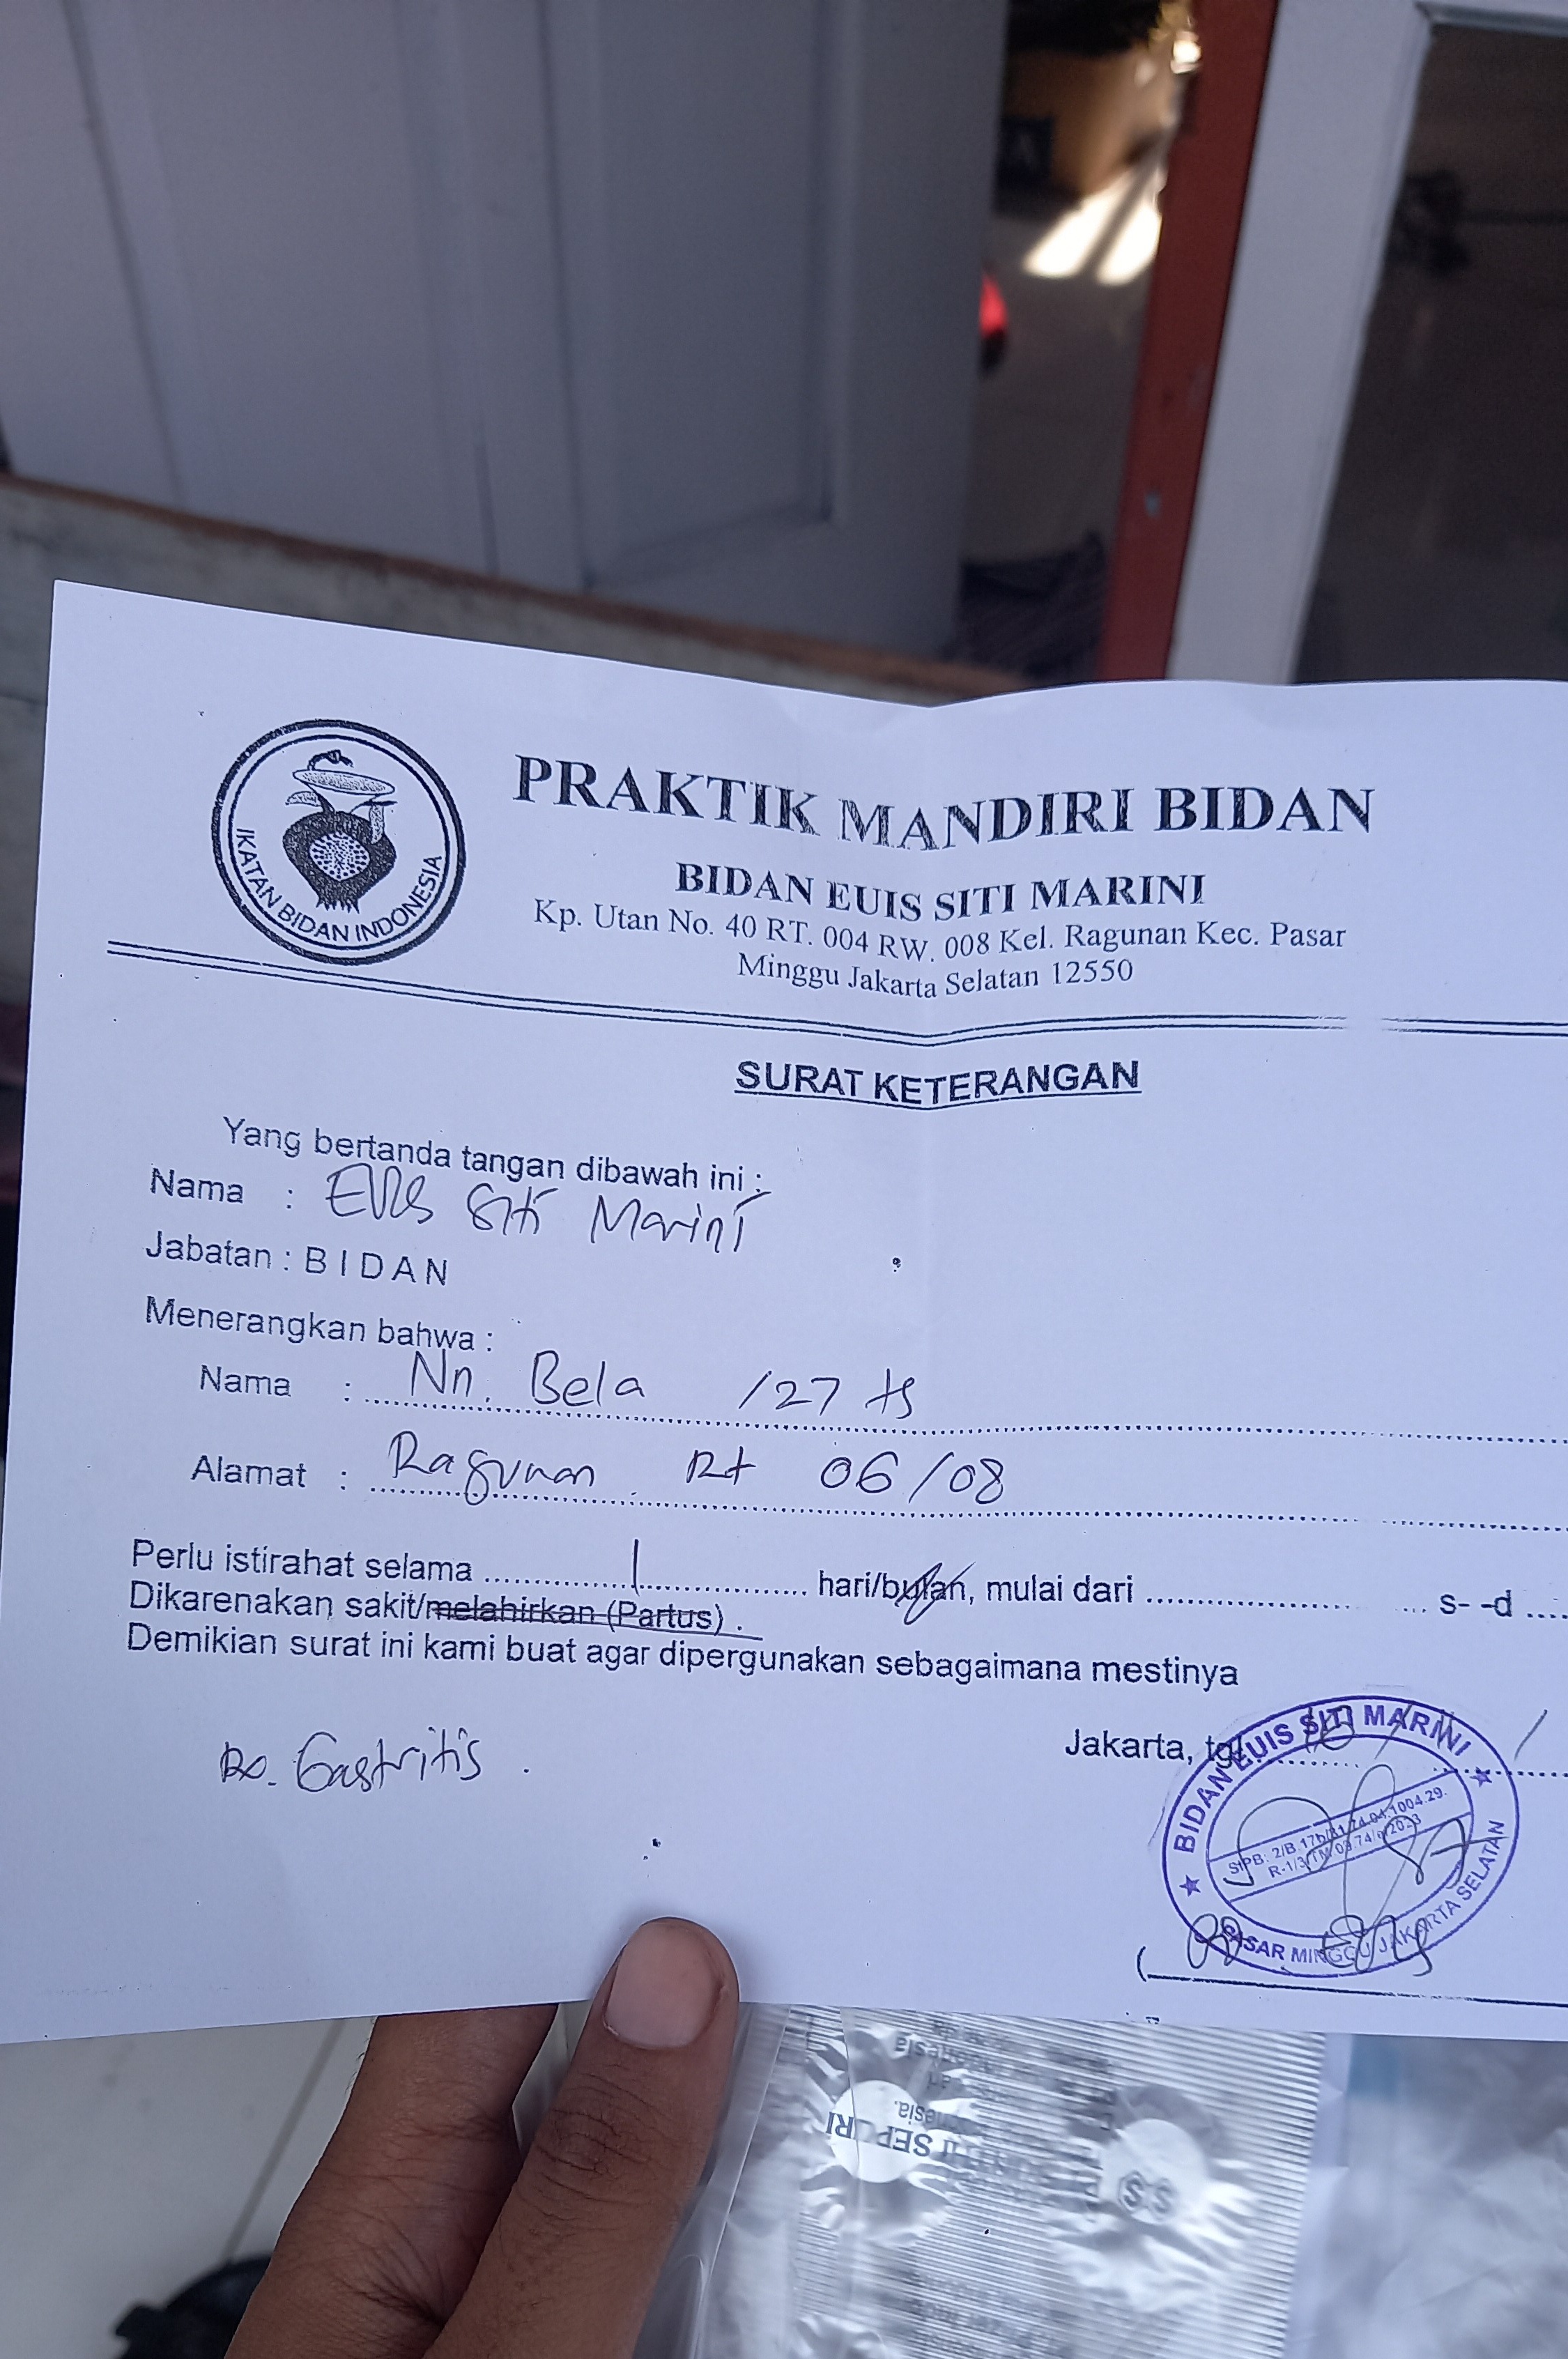 IKATAN BIDAN INDONESIA
PRAKTIK MANDIRI BIDAN
BIDAN EUIS SITI MARINI
Kp. Utan No. 40 RT. 004 RW. 008 Kel. Ragunan Kec. Pasar
Minggu Jakarta Selatan 12550
SURAT KETERANGAN
Yang bertanda tangan dibawah ini :
Nama : Euis Siti Marini
Jabatan : BIDAN
Menerangkan bahwa :
Nama : Nn. Bela /27 th
Alamat : Ragunan Rt 06/08
Perlu istirahat selama 1 hari/bulan, mulai dari s- -d
Dikarenakan sakit/melahirkan (Partus) .
Demikian surat ini kami buat agar dipergunakan sebagaimana mestinya
Jakarta, tgl
Gastritis .
BIDAN EUIS SITI MARINI
PASAR MINGGU JAKARTA SELATAN